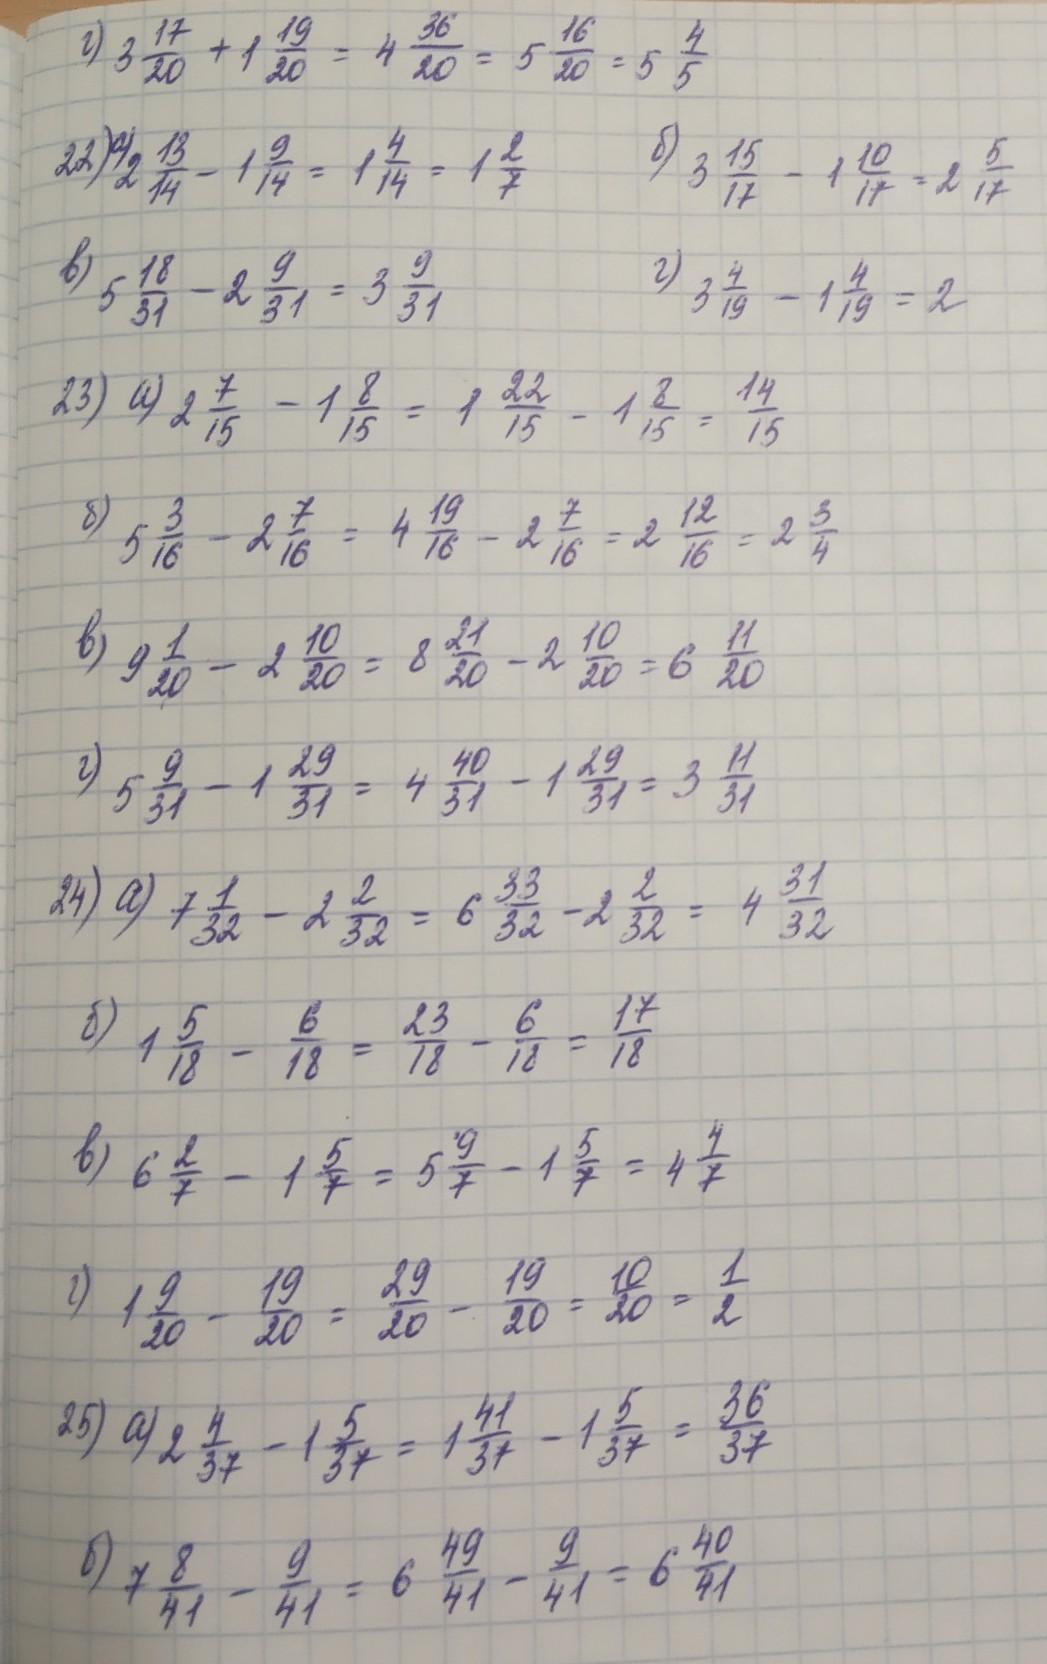 г) 3 17/20 + 1 19/20 = 4 36/20 = 5 16/20 = 5 4/5
22) а) 2 13/14 - 1 9/14 = 1 4/14 = 1 2/7 б) 3 15/17 - 1 10/17 = 2 5/17
в) 5 18/31 - 2 9/31 = 3 9/31 г) 3 4/19 - 1 4/19 = 2
23) а) 2 7/15 - 1 8/15 = 1 22/15 - 1 8/15 = 14/15
б) 5 3/16 - 2 7/16 = 4 19/16 - 2 7/16 = 2 12/16 = 2 3/4
в) 9 1/20 - 2 10/20 = 8 21/20 - 2 10/20 = 6 11/20
г) 5 9/31 - 1 29/31 = 4 40/31 - 1 29/31 = 3 11/31
24) а) 7 1/32 - 2 2/32 = 6 33/32 - 2 2/32 = 4 31/32
б) 1 5/18 - 6/18 = 23/18 - 6/18 = 17/18
в) 6 2/7 - 1 5/7 = 5 9/7 - 1 5/7 = 4 4/7
г) 1 9/20 - 19/20 = 29/20 - 19/20 = 10/20 = 1/2
25) а) 2 4/37 - 1 5/37 = 1 41/37 - 1 5/37 = 36/37
б) 7 8/41 - 9/41 = 6 49/41 - 9/41 = 6 40/41